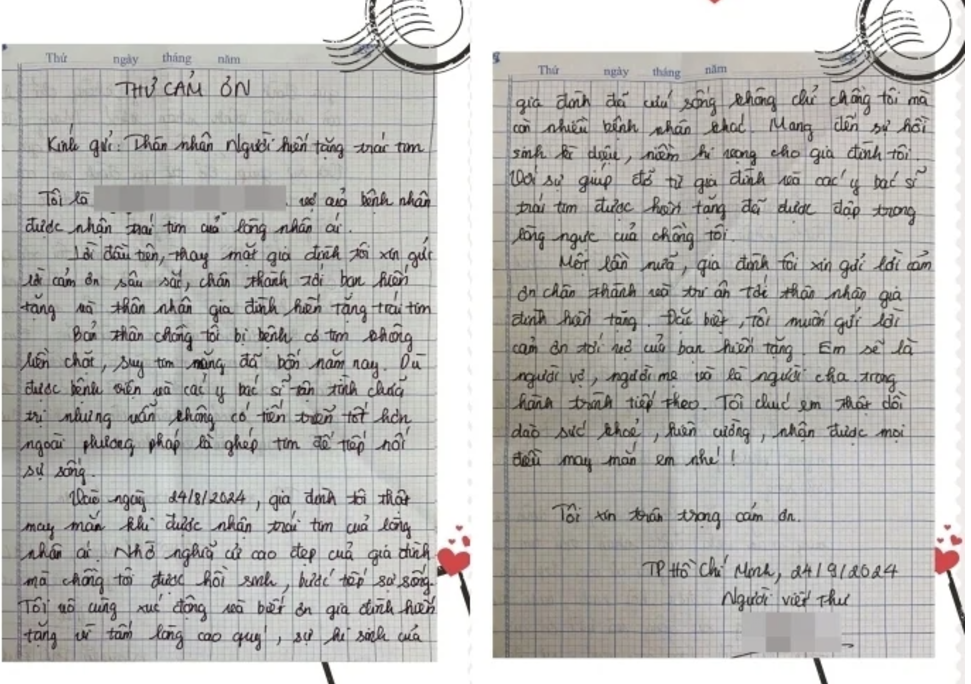 Thứ ngày tháng năm
THƯ CẢM ƠN
Kính gửi: Thân nhân Người hiến tặng trái tim
Tôi là vợ của bệnh nhân
được nhận trái tim của lòng nhân ái.
Lời đầu tiên, thay mặt gia đình tôi xin gửi
lời cảm ơn sâu sắc, chân thành tới bạn hiến
tặng và thân nhân gia đình hiến tặng trái tim
Bản thân chồng tôi bị bệnh cơ tim không
liên chặt, suy tim nặng đã bốn năm nay. Dù
được bệnh viện và các y bác sĩ tận tình chữa
trị nhưng vẫn không có tiến triển tốt hơn
ngoài phương pháp là ghép tim để tiếp nối
sự sống.
Vào ngày 24/8/2024, gia đình tôi thật
may mắn khi được nhận trái tim của lòng
nhân ái. Nhờ nghĩa cử cao đẹp của gia đình
mà chồng tôi được hồi sinh, bước tiếp sự sống.
Tôi vô cùng xúc động và biết ơn gia đình hiến
tặng vì tấm lòng cao quý, sự hi sinh của
Thứ ngày tháng năm
gia đình đã cứu sống không chỉ chồng tôi mà
còn nhiều bệnh nhân khác. Mang đến sự hồi
sinh kì diệu, niềm hi vọng cho gia đình tôi.
Với sự giúp đỡ từ gia đình và các y bác sĩ
trái tim được hiến tặng đã được đập trong
lồng ngực của chồng tôi.
Một lần nữa, gia đình tôi xin gửi lời cảm
ơn chân thành và tri ân tới thân nhân gia
đình hiến tặng. Đặc biệt, tôi muốn gửi lời
cảm ơn tới vợ của bạn hiến tặng. Em sẽ là
người vợ, người mẹ và là người cha trong
hành trình tiếp theo. Tôi chúc em thật dồi
dào sức khoẻ, kiên cường, nhận được mọi
điều may mắn em nhé!
Tôi xin trân trọng cảm ơn.
TP Hồ Chí Minh, 24/9/2024
Người viết thư